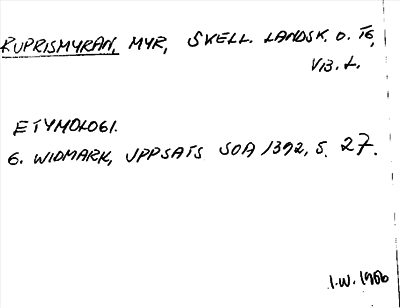 RUPRISMYRAN, MYR, SKELL. LANDSK. O. TG,
VB. L.
ETYMOLOGI.
G. WIDMARK, UPPSATS SOA 1392, S. 27.
I.W. 1966